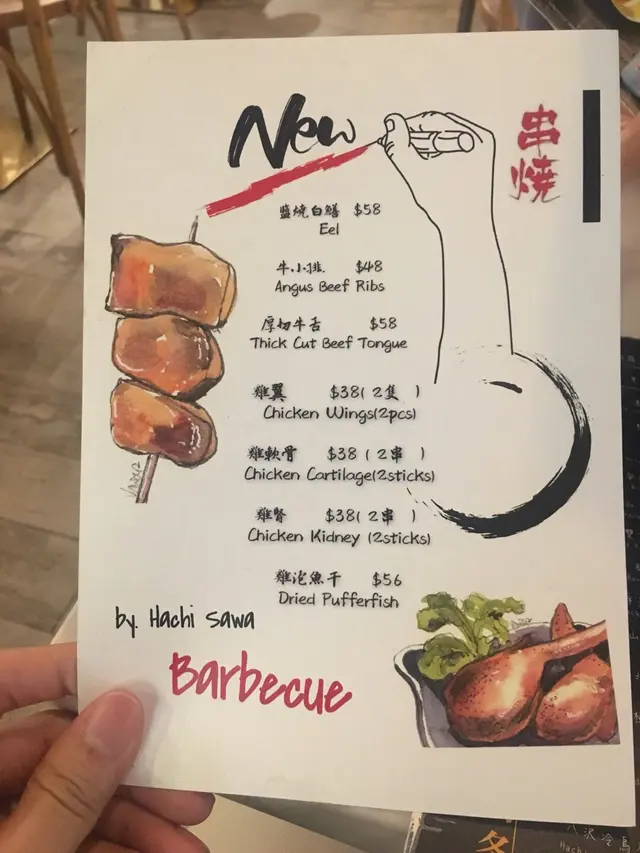 New
串
燒
鹽燒白鱔 $58
Eel
牛小排 $48
Angus Beef Ribs
厚切牛舌 $58
Thick Cut Beef Tongue
雞翼 $38(2隻)
Chicken Wings(2pcs)
雞軟骨 $38(2串)
Chicken Cartilage(2sticks)
雞腎 $38(2串)
Chicken Kidney (2sticks)
雞泡魚干 $56
Dried Pufferfish
by. Hachi Sawa
Barbecue